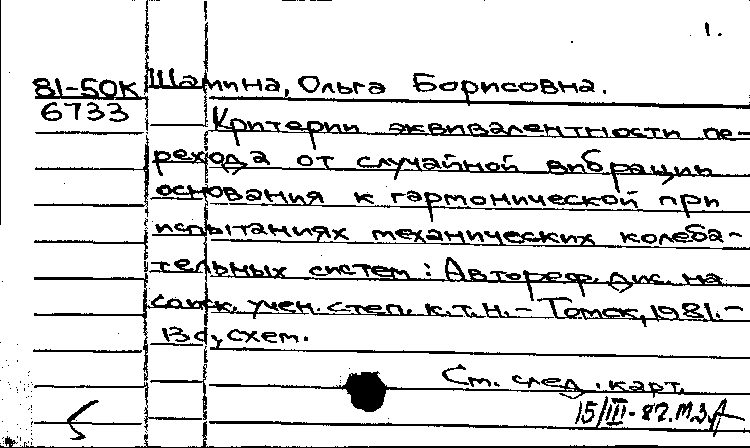 1.
81-50К Шамина, Ольга Борисовна.
6733 Критерии эквивалентности пе-
рехода от случайной вибрации
основания к гармонической при
испытаниях механических колеба-
тельных систем: Автореф. дис. на
соиск. учен. степ. к.т.н. - Томск, 1981. -
13 с, схем.
См. след. карт.
15/III-82. М.З.